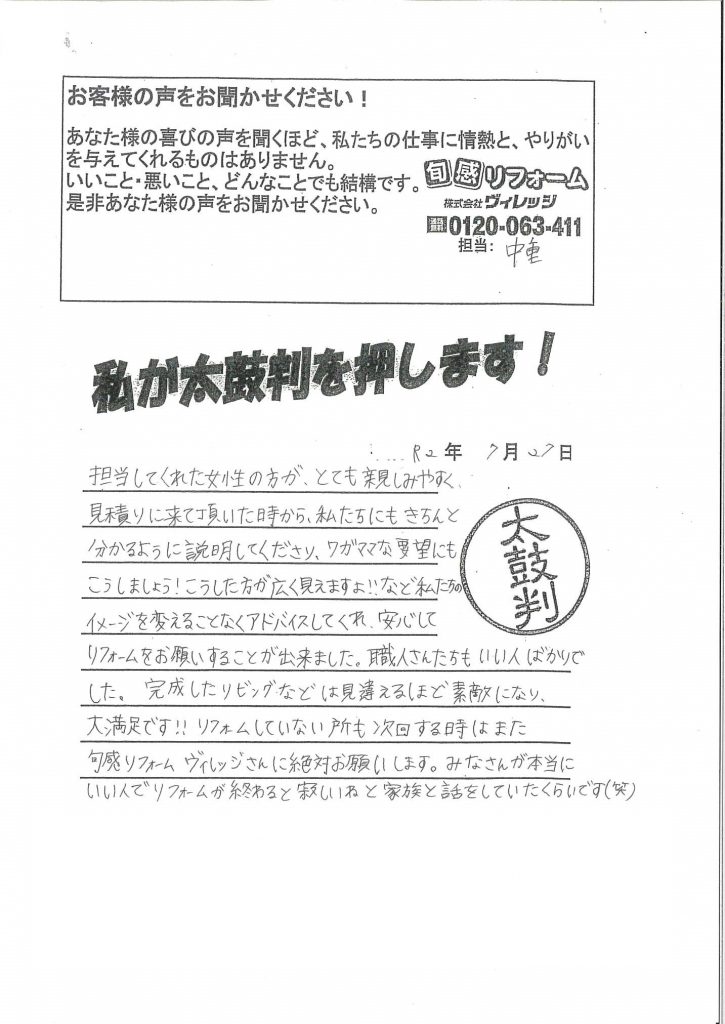 お客様の声をお聞かせください！
あなた様の喜びの声を聞くほど、私たちの仕事に情熱と、やりがい
を与えてくれるものはありません。
いいこと・悪いこと、どんなことでも結構です。
是非あなた様の声をお聞かせください。
旬感リフォーム
株式会社ヴィレッジ
0120-063-411
担当: 中重
私が太鼓判を押します！
R2年 7月27日
担当してくれた女性の方が、とても親しみやすく、
見積りに来て頂いた時から、私たちにもきちんと
分かるように説明してくださり、ワガママな要望にも
こうしましょう！こうした方が広く見えますよ!!など私たちの
イメージを変えることなくアドバイスしてくれ、安心して
リフォームをお願いすることが出来ました。職人さんたちもいい人ばかりで
した。完成したリビングなどは見違えるほど素敵になり、
大満足です!!リフォームしていない所も次回する時はまた
旬感リフォーム ヴィレッジさんに絶対お願いします。みなさんが本当に
いい人でリフォームが終わると寂しいねと家族と話をしていたくらいです(笑)
太鼓判